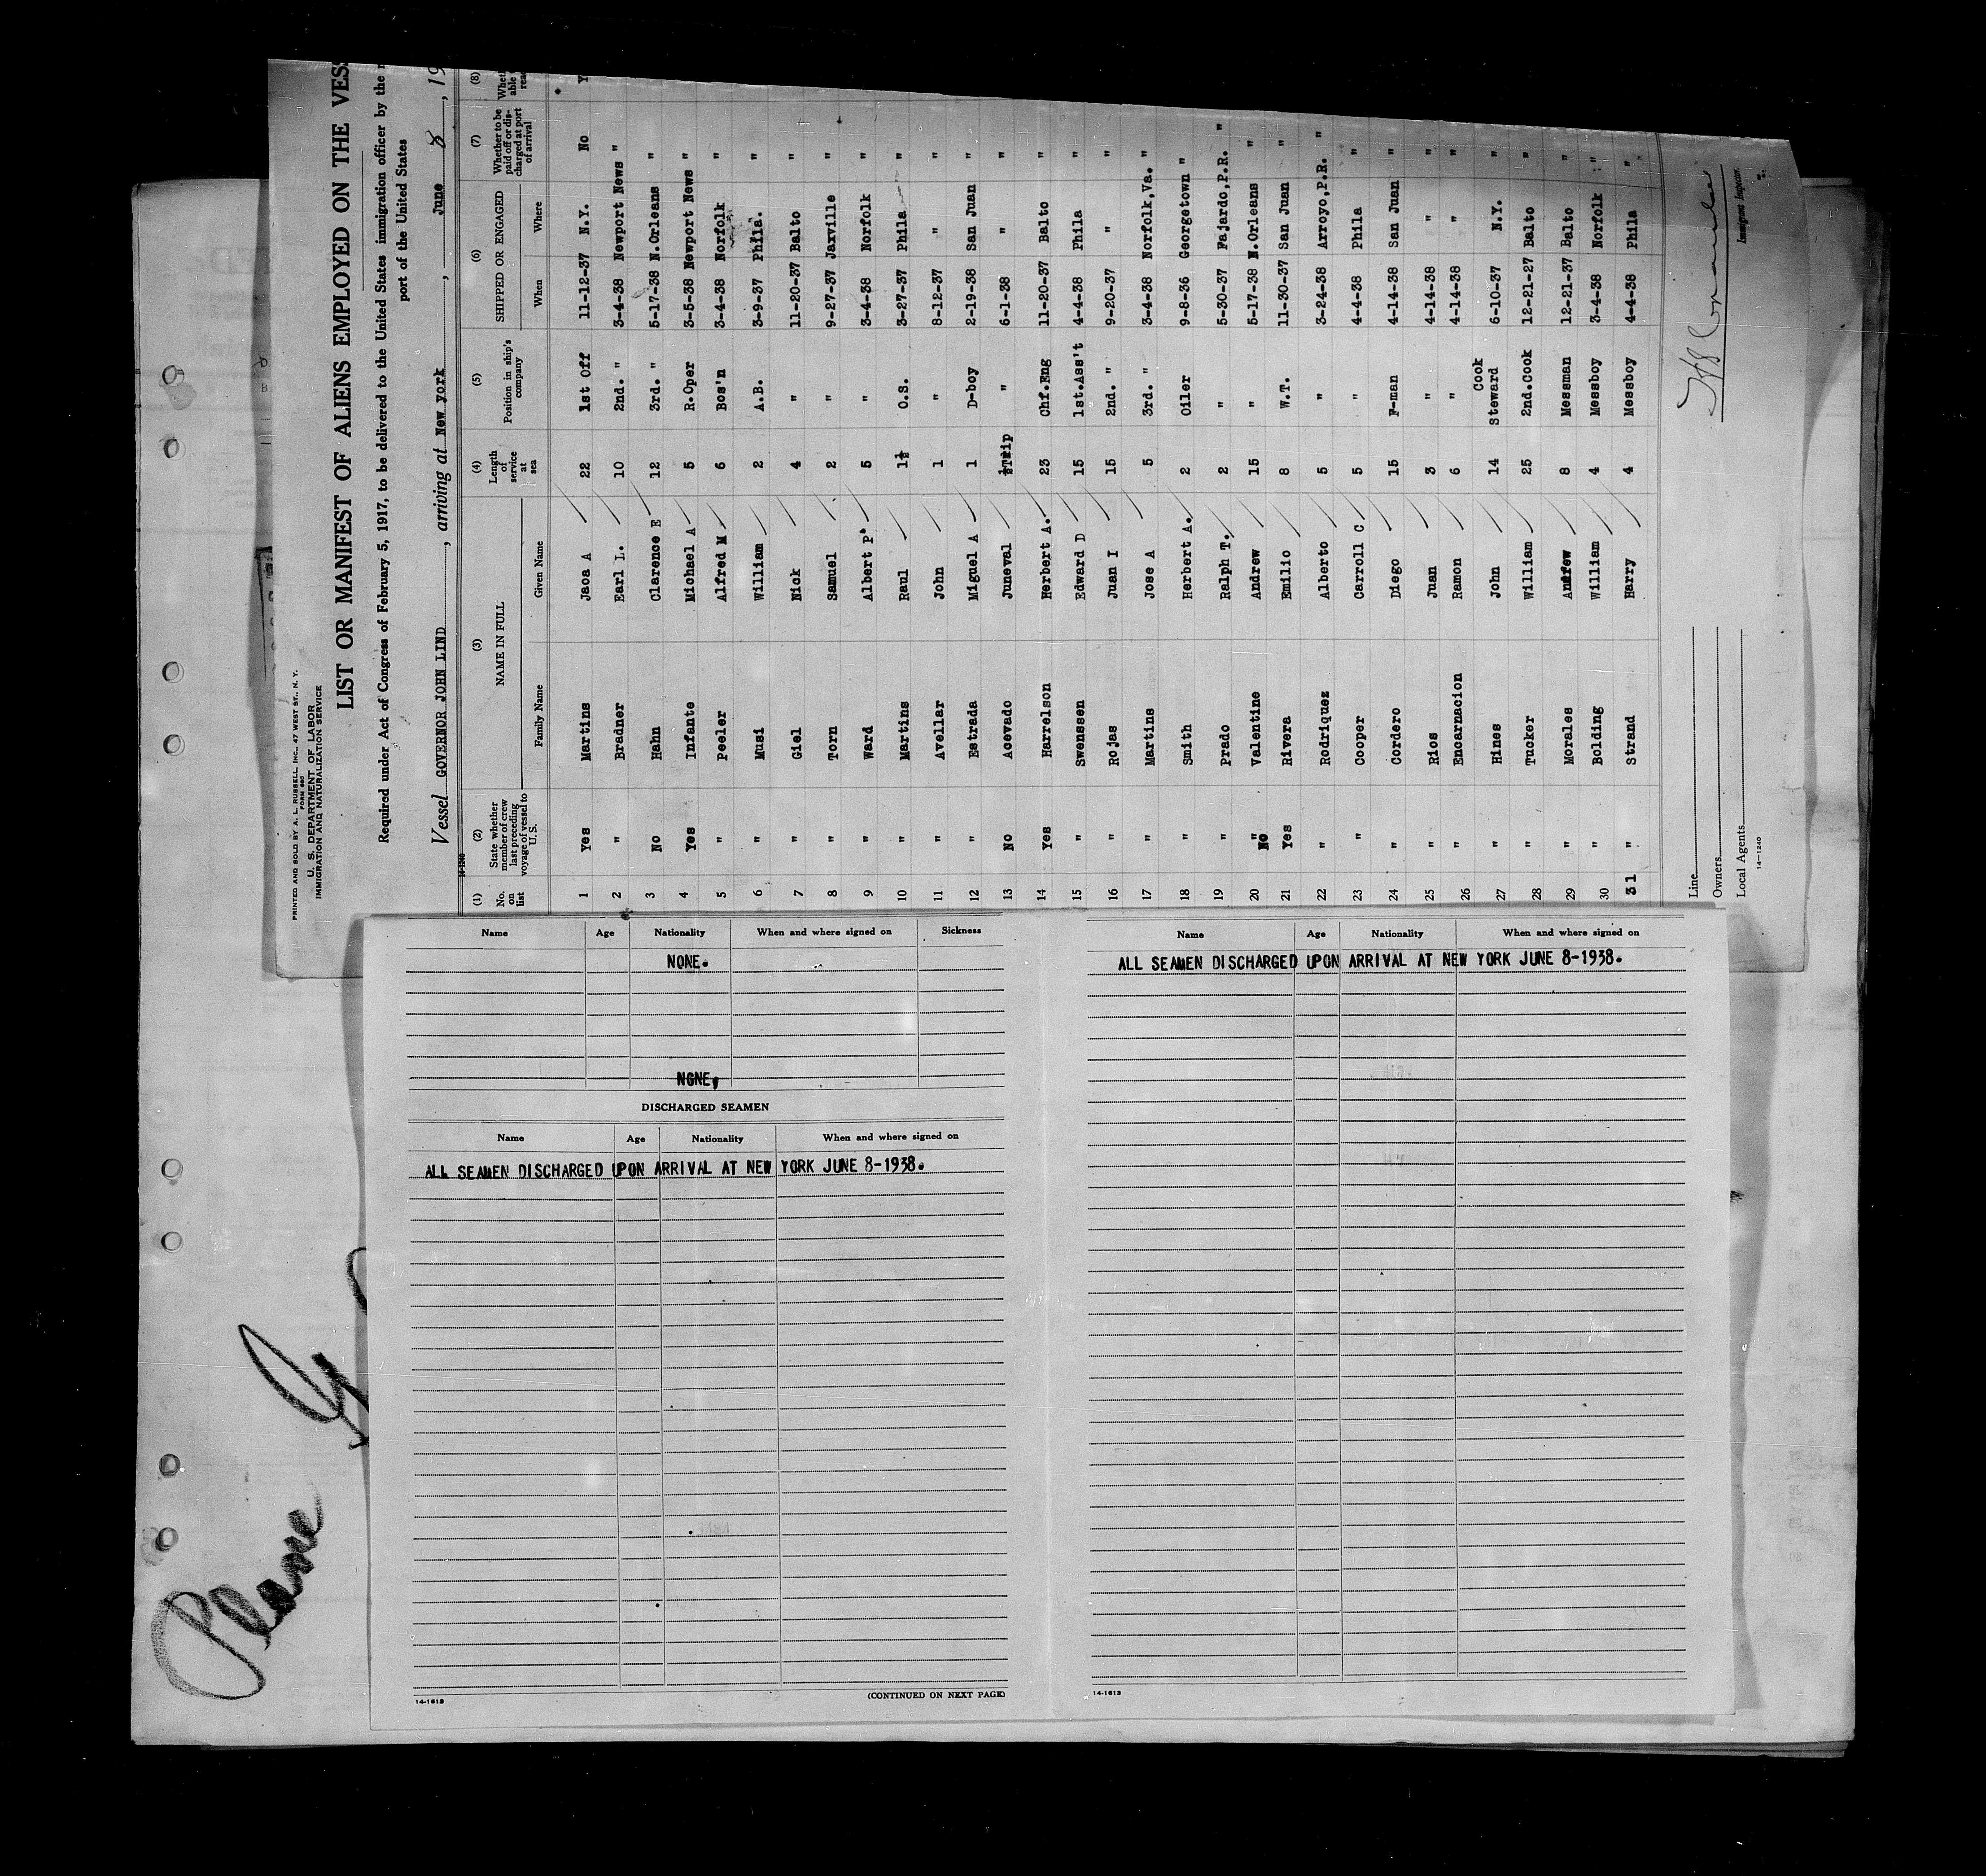 PRINTED AND SOLD BY A. L. RUSSELL, INC., 47 WEST ST., N. Y.
FORM 680
U. S. DEPARTMENT OF LABOR
IMMIGRATION AND NATURALIZATION SERVICE
LIST OR MANIFEST OF ALIENS EMPLOYED ON THE VESS
Required under Act of Congress of February 5, 1917, to be delivered to the United States immigration officer by the
port of the United States
Vessel GOVERNOR JOHN LIND, arriving at New york, June 8, 19
14-1240
(1) (2) (3) (4) (5) (6) (7) (8)
No. on list State whether member of crew last preceding voyage of vessel to U. S. NAME IN FULL Family Name Given Name Length of service at sea Position in ship's company SHIPPED OR ENGAGED When Where Whether to be paid off or discharged at port of arrival
1 Yes Martins Jaoa A 22 1st Off 11-12-37 N.Y. No Y
2 " Bradner Earl L. 10 2nd. " 3-4-38 Newport News "
3 No Hahn Clarence E 12 3rd. " 5-17-38 N.Orleans "
4 Yes Infante Michael A 5 R.Oper 3-5-38 Newport News "
5 " Peeler Alfred M 6 Bos'n 3-4-38 Norfolk "
6 " Musi William 2 A.B. 3-9-37 Phila. "
7 " Giel Nick 4 " 11-20-37 Balto "
8 " Torn Samuel 2 " 9-27-37 Jaxville "
9 " Ward Albert P 5 " 3-4-38 Norfolk "
10 " Martins Raul 1½ O.S. 3-27-37 Phila "
11 " Avellar John 1 " 8-12-37 " "
12 " Estrada Miguel A 1 D-boy 2-19-38 San Juan "
13 No Acevado Juneval Trip " 6-1-38 " "
14 Yes Harrelson Herbert A. 23 Chf.Eng 11-20-37 Balto "
15 " Swenssen Edward D 15 1st.Ass't 4-4-38 Phila "
16 " Rojas Juan I 15 2nd. " 9-20-37 " "
17 " Martins Jose A 5 3rd. " 3-4-38 Norfolk,Va. "
18 " Smith Herbert A. 2 Oiler 9-8-36 Georgetown "
19 " Prado Ralph T. 2 " 5-30-37 Fajardo,P.R. "
20 No Valentine Andrew 15 " 5-17-38 N.Orleans "
21 Yes Rivera Emilio 8 W.T. 11-30-37 San Juan "
22 " Rodriquez Alberto 5 " 3-24-38 Arroyo,P.R. "
23 " Cooper Carroll C 5 " 4-4-38 Phila "
24 " Cordero Diego 15 F-man 4-14-38 San Juan "
25 " Rios Juan 3 " 4-14-38 " "
26 " Encarnacion Ramon 6 " 4-14-38 " "
27 " Hines John 14 Cook Steward 6-10-37 N.Y. "
28 " Tucker William 25 2nd.Cook 12-21-27 Balto "
29 " Morales Andrew 8 Messman 12-21-37 Balto "
30 " Bolding William 4 Messboy 3-4-38 Norfolk "
31 " Strand Harry 4 Messboy 4-4-38 Phila "
Line
Owners
Local Agents
14-1240
Immigrant Inspector.
Name Age Nationality When and where signed on Sickness
NONE.
NONE,
DISCHARGED SEAMEN
Name Age Nationality When and where signed on
ALL SEAMEN DISCHARGED UPON ARRIVAL AT NEW YORK JUNE 8-1938.
14-1613
(CONTINUED ON NEXT PAGE)
Name Age Nationality When and where signed on
ALL SEAMEN DISCHARGED UPON ARRIVAL AT NEW YORK JUNE 8-1938.
14-1613